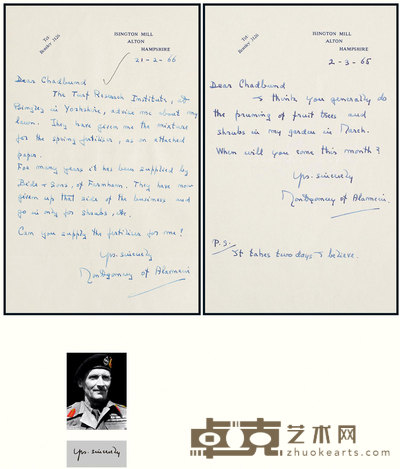 Tel. Bentley 3126
ISINGTON MILL
ALTON
HAMPSHIRE
21-2-66
Dear Chadbund
The Turf Research Institute, at
Bingley in Yorkshire, advise me about my
lawn. They have given me the mixture
for the spring fertiliser, as on attached
paper.
For many years it has been supplied by
Bide & Sons, of Farnham. They have now
given up that side of the business and
go in only for shrubs, etc.
Can you supply the fertiliser for me?
Yrs. sincerely
Montgomery of Alamein
Tel. Bentley 3126
ISINGTON MILL
ALTON
HAMPSHIRE
2-3-65
Dear Chadbund
I think you generally do
the pruning of fruit trees and
shrubs in my garden in March.
When will you come this month?
Yrs. sincerely
Montgomery of Alamein
P.S.
It takes two days I believe.
Yrs. sincerely
卓克艺术网
zhuokearts.com